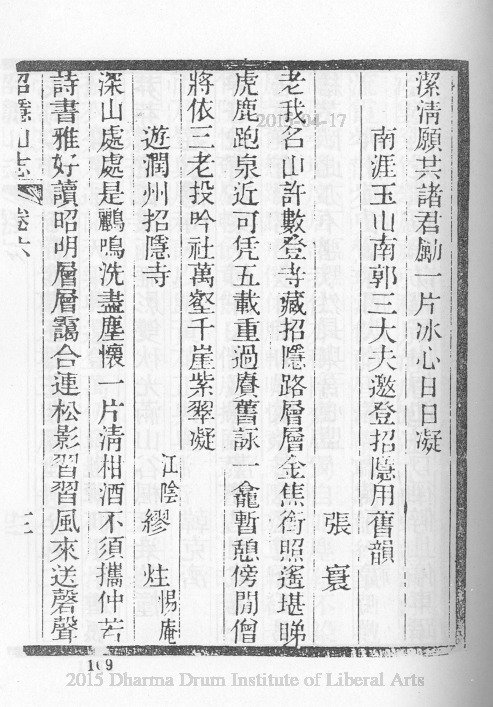 潔清願共諸君勵一片冰心日日凝
南涯玉山南郭三大夫邀登招隱用舊韻
張寰
老我名山許數登寺藏招隱路層層金焦銜照遙堪睇
虎鹿跑泉近可凭五載重過賡舊詠一龕暫憩傍閒僧
將依三老投吟社萬壑千崖紫翠凝
遊潤州招隱寺
江陰繆烓惕庵
深山處處是鸝鳴洗盡塵懷一片清柑酒不須攜仲若
詩書雅好讀昭明層層靄合連松影習習風來送磬聲
招隱山志 卷六 三
2015-04-17
169
2015 Dharma Drum Institute of Liberal Arts